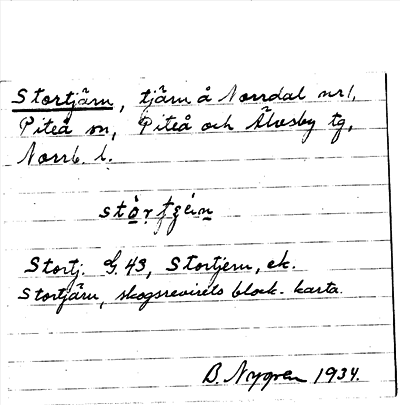 Stortjärn, tjärn å Norrdal nr 1,
Piteå sn, Piteå och Älvsby tg,
Norrb. l.
Stortj. G. 43, Stortjern, ek.
Stortjärn, skogsrevirets block-karta.
B. Nygren 1934.